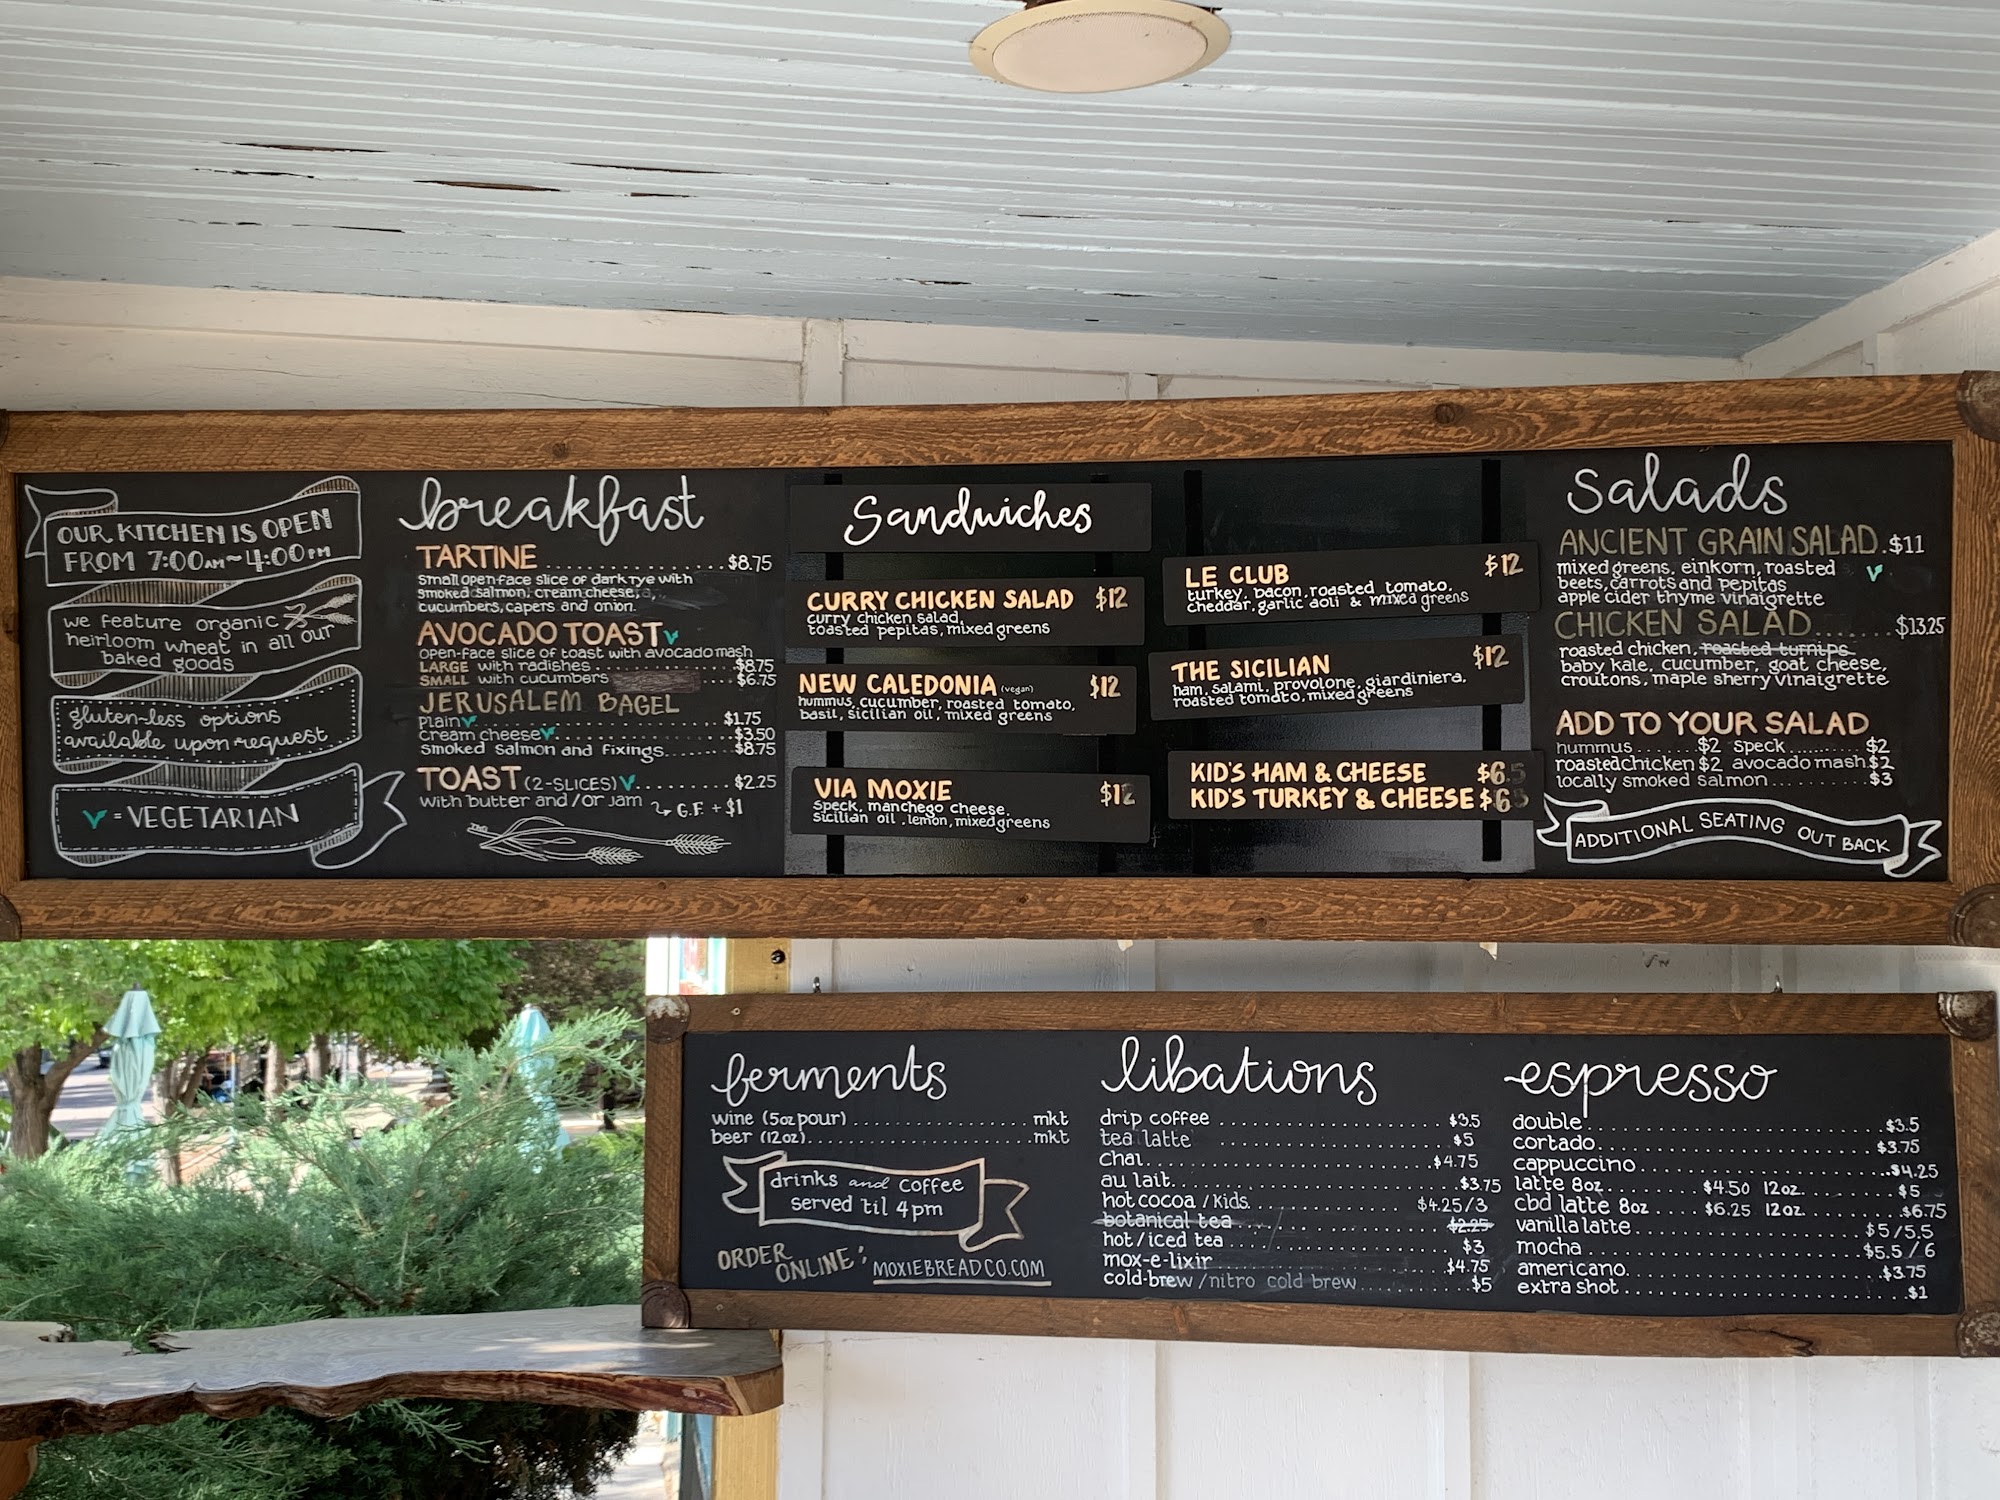 OUR KITCHEN IS OPEN
FROM 7:00AM~4:00PM
we feature organic
heirloom wheat in all our
baked goods
gluten-less options
available upon request
V = VEGETARIAN
breakfast
TARTINE .......... $8.75
small open-face slice of dark rye with
smoked salmon, cream cheese,
cucumbers, capers and onion.
AVOCADO TOAST V
open-face slice of toast with avocado mash
LARGE with radishes .......... $8.75
SMALL with cucumbers .......... $6.75
JERUSALEM BAGEL
plain V .......... $1.75
cream cheese V .......... $3.50
smoked salmon and fixings .......... $8.75
TOAST (2-SLICES) V .......... $2.25
with butter and/or jam G.F. + $1
Sandwiches
CURRY CHICKEN SALAD $12
curry chicken salad,
toasted pepitas, mixed greens
NEW CALEDONIA (vegan) $12
hummus, cucumber, roasted tomato,
basil, sicilian oil, mixed greens
VIA MOXIE $12
speck, manchego cheese,
sicilian oil, lemon, mixed greens
LE CLUB $12
turkey, bacon, roasted tomato,
cheddar, garlic aoli & mixed greens
THE SICILIAN $12
ham, salami, provolone, giardiniera,
roasted tomato, mixed greens
KID'S HAM & CHEESE $6.5
KID'S TURKEY & CHEESE $6.5
Salads
ANCIENT GRAIN SALAD. $11
mixed greens, einkorn, roasted V
beets, carrots and pepitas
apple cider thyme vinaigrette
CHICKEN SALAD ....... $13.25
roasted chicken, roasted turnips
baby kale, cucumber, goat cheese,
croutons, maple sherry vinaigrette
ADD TO YOUR SALAD
hummus ....... $2 speck ....... $2
roasted chicken $2 avocado mash $2
locally smoked salmon .......... $3
ADDITIONAL SEATING OUT BACK
ferments
wine (5oz pour) .......... mkt
beer (12oz) .......... mkt
drinks and coffee
served til 4pm
ORDER
ONLINE: MOXIEBREADCO.COM
libations
drip coffee .......... $3.5
tea latte .......... $5
chai .......... $4.75
au lait .......... $3.75
hot cocoa / kids .......... $4.25/3
botanical tea .......... $2.25
hot/iced tea .......... $3
mox-e-lixir .......... $4.75
cold-brew/nitro cold brew .......... $5
espresso
double .......... $3.5
cortado .......... $3.75
cappuccino .......... $4.25
latte 8oz ....... $4.50 12oz ....... $5
cbd latte 8oz ..... $6.25 12oz ....... $6.75
vanilla latte .......... $5/5.5
mocha .......... $5.5/6
americano .......... $3.75
extra shot .......... $1